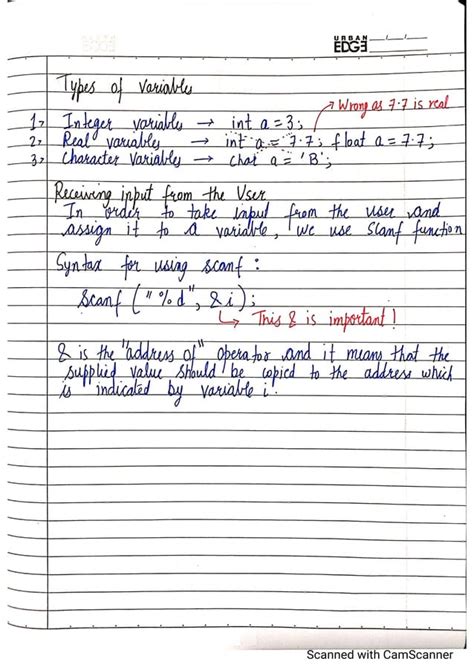 URBAN
EDGE
Types of Variables
→ Wrong as 7.7 is real
1→ Integer variables → int a = 3;
2→ Real variables → int a = 7.7; float a = 7.7;
3→ Character Variables → char a = 'B';
Receiving input from the User
In order to take input from the user and
assign it to a variable, we use Scanf function
Syntax for using scanf :
Scanf ("%d", &i);
↳ This & is important!
& is the "address of" operator and it means that the
supplied value should be copied to the address which
is indicated by variable i.
Scanned with CamScanner